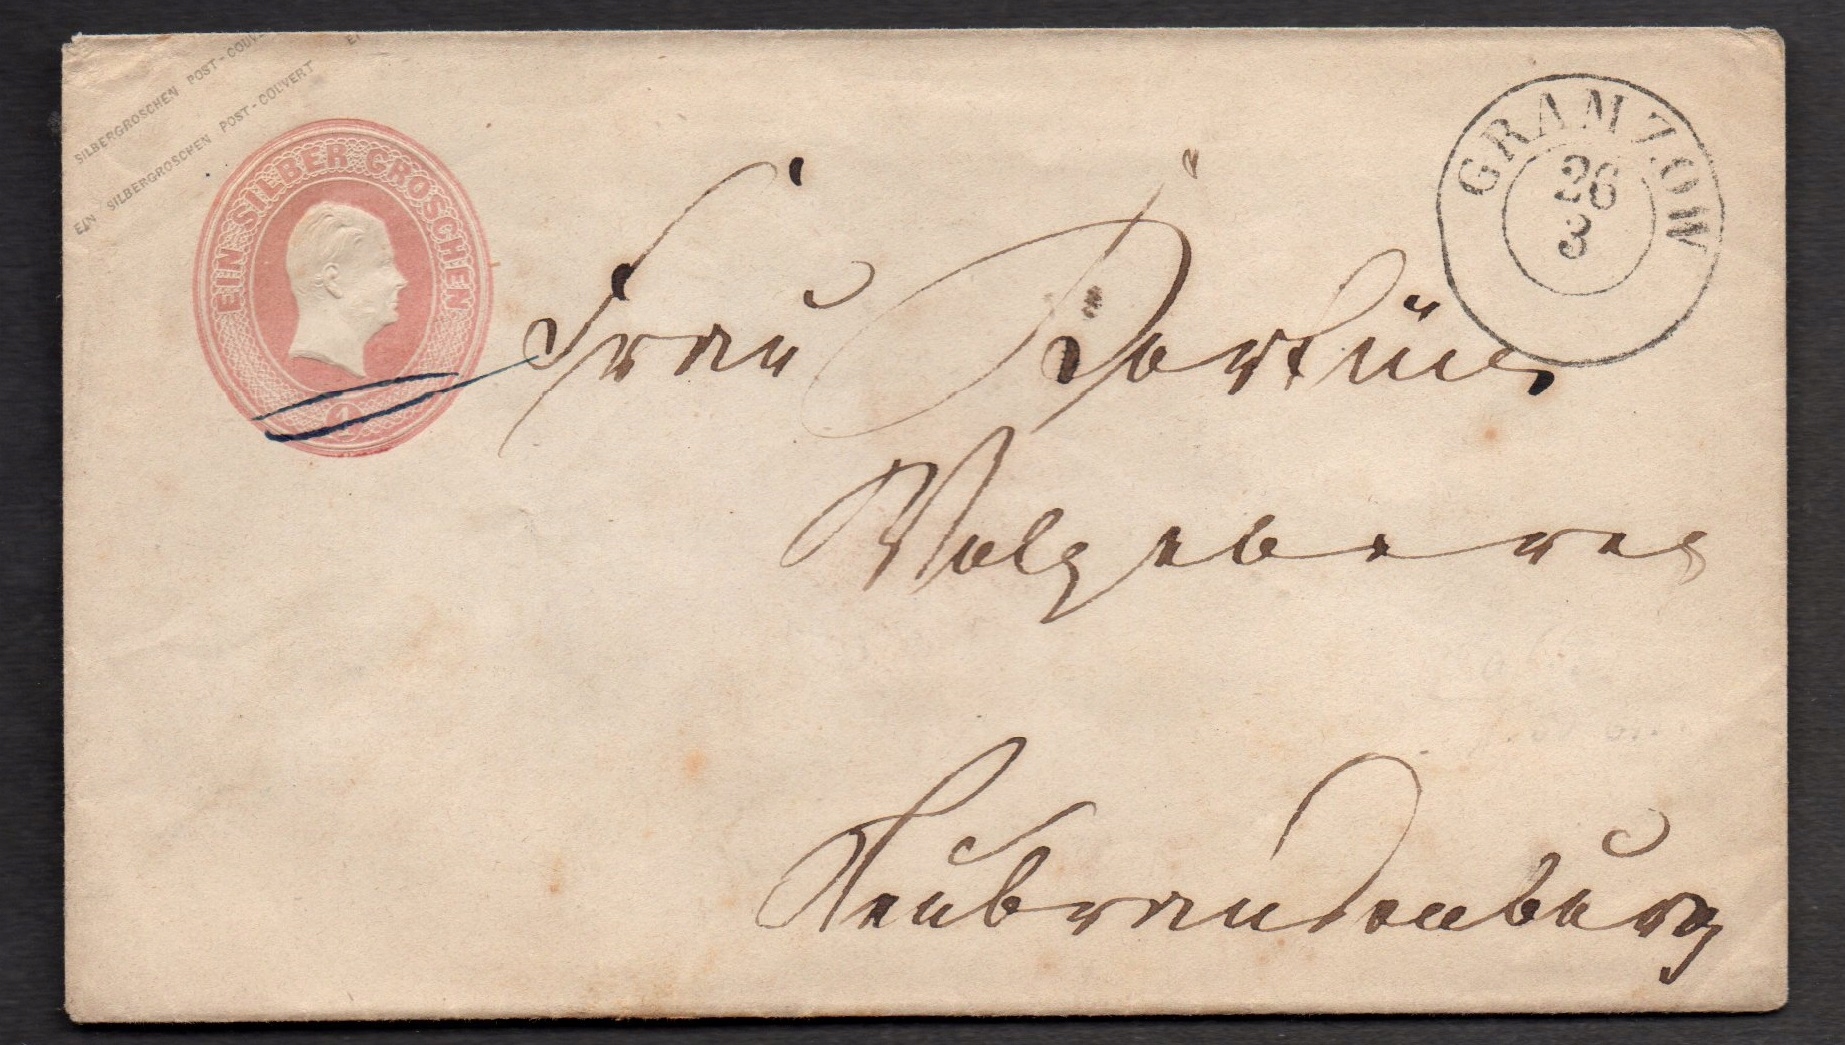 SILBERGROSCHEN POST-COUV
EIN SILBERGROSCHEN POST-COUVERT EI
EIN SILBER GROSCHEN
1
GRAMZOW
26
3
Frau
Wolgeboren
Neubrandenburg